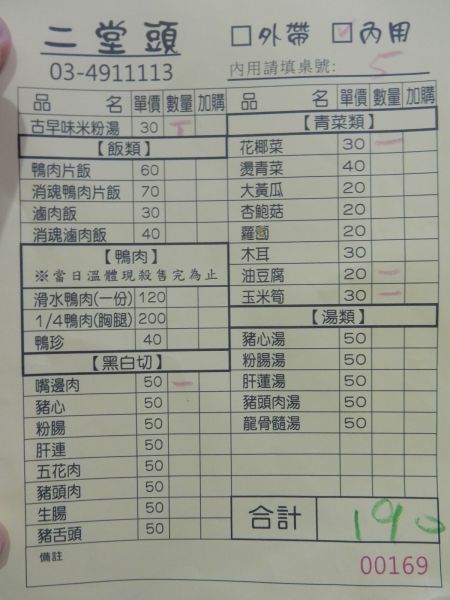 二堂頭 □外帶 ☑內用
03-4911113 內用請填桌號: 5
品名 單價 數量 加購
古早味米粉湯 30 T
【飯類】
鴨肉片飯 60
消魂鴨肉片飯 70
滷肉飯 30
消魂滷肉飯 40
【鴨肉】
※當日溫體現殺售完為止
滑水鴨肉(一份) 120
1/4鴨肉(胸腿) 200
鴨珍 40
【黑白切】
嘴邊肉 50 一
豬心 50
粉腸 50
肝連 50
五花肉 50
豬頭肉 50
生腸 50
豬舌頭 50
備註
品名 單價 數量 加購
【青菜類】
花椰菜 30 一
燙青菜 40
大黃瓜 20
杏鮑菇 20
蘿蔔 20
木耳 30
油豆腐 20 一
玉米筍 30 一
【湯類】
豬心湯 50
粉腸湯 50
肝蓮湯 50
豬頭肉湯 50
龍骨髓湯 50
合計 190
00169